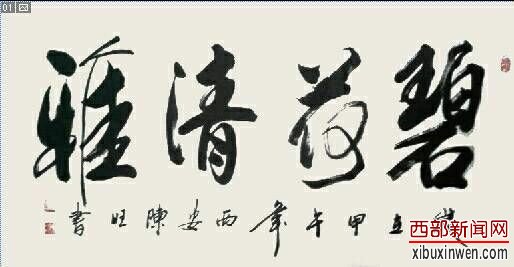 01
碧荷清雅
歲在甲午年西安陳旺書
西部新闻网
xibuxinwen.com